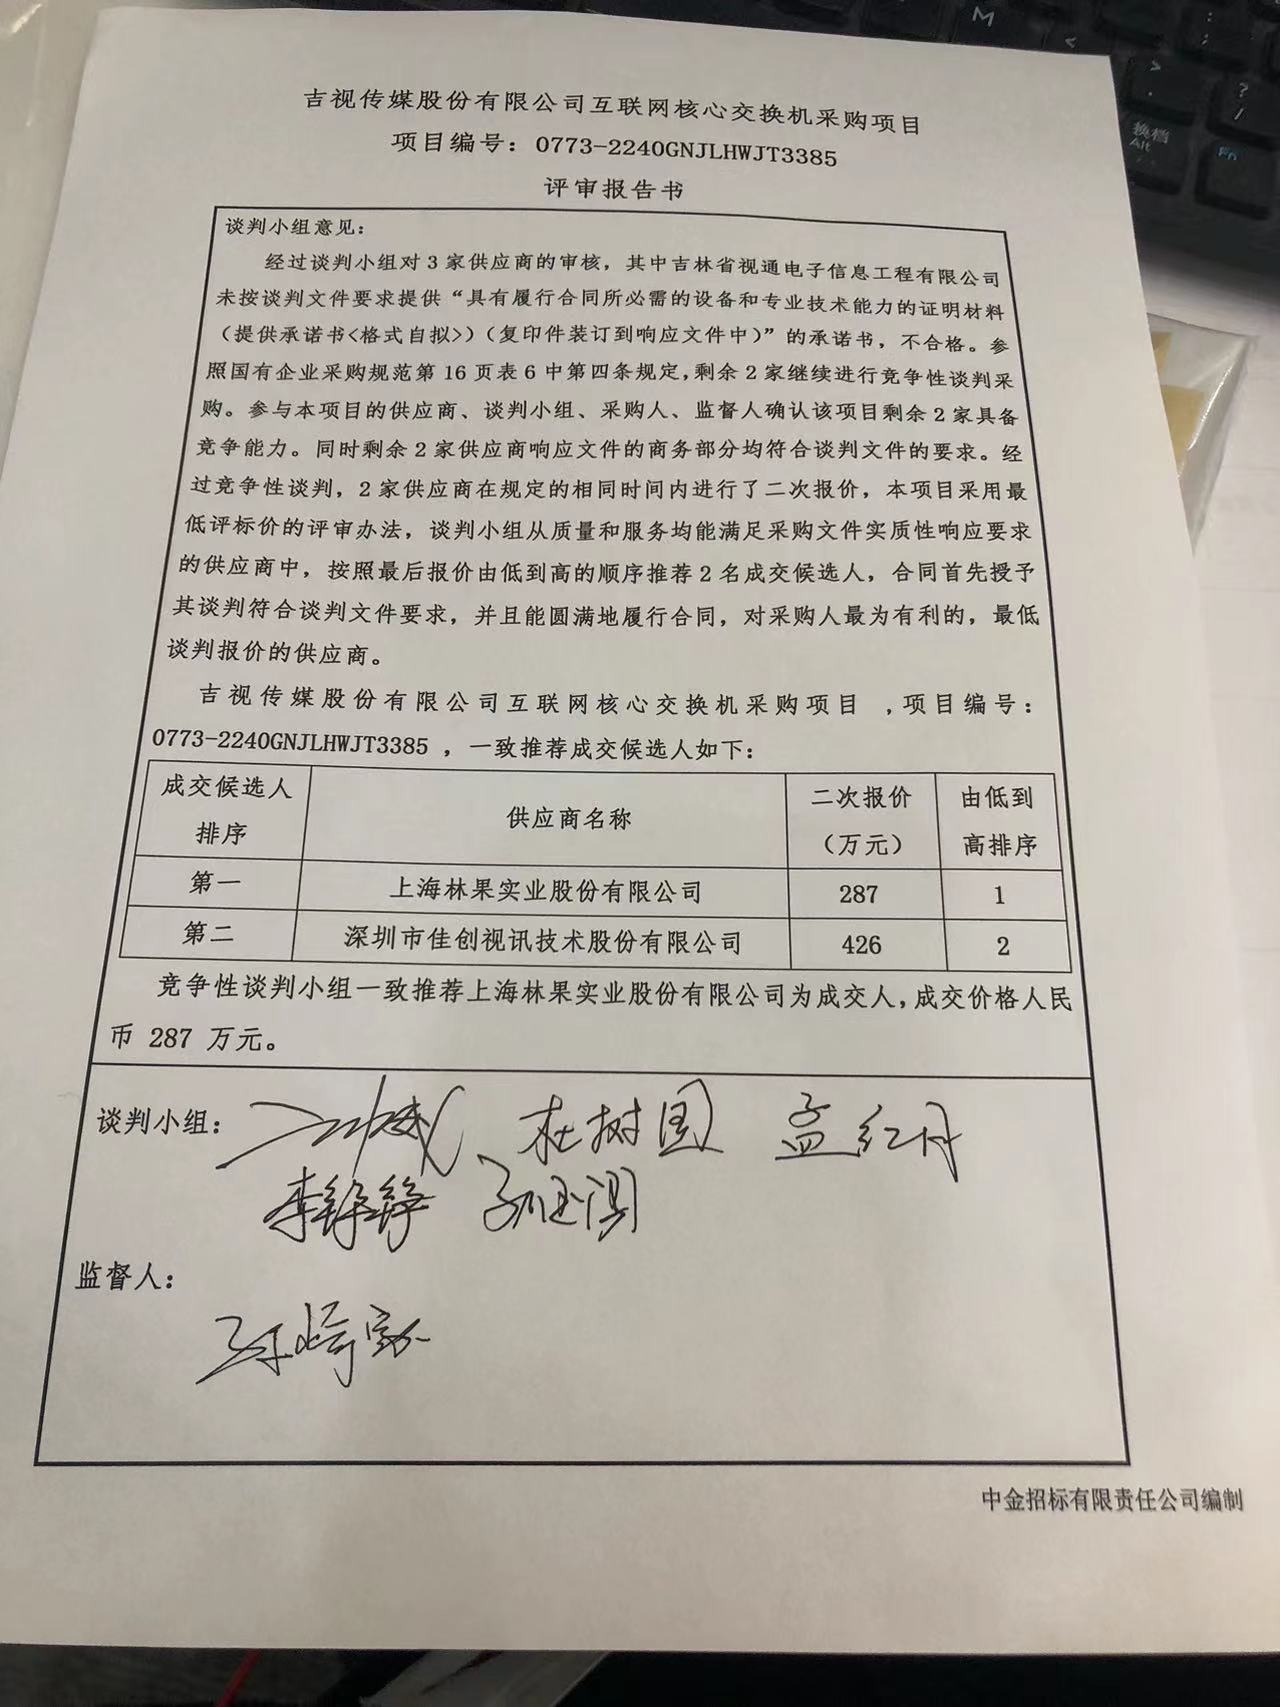 吉视传媒股份有限公司互联网核心交换机采购项目
项目编号：0773-2240GNJLHWJT3385
评审报告书
谈判小组意见：
经过谈判小组对3家供应商的审核，其中吉林省视通电子信息工程有限公司
未按谈判文件要求提供“具有履行合同所必需的设备和专业技术能力的证明材料
（提供承诺书<格式自拟>）（复印件装订到响应文件中）”的承诺书，不合格。参
照国有企业采购规范第16页表6中第四条规定，剩余2家继续进行竞争性谈判采
购。参与本项目的供应商、谈判小组、采购人、监督人确认该项目剩余2家具备
竞争能力。同时剩余2家供应商响应文件的商务部分均符合谈判文件的要求。经
过竞争性谈判，2家供应商在规定的相同时间内进行了二次报价，本项目采用最
低评标价的评审办法，谈判小组从质量和服务均能满足采购文件实质性响应要求
的供应商中，按照最后报价由低到高的顺序推荐2名成交候选人，合同首先授予
其谈判符合谈判文件要求，并且能圆满地履行合同，对采购人最为有利的，最低
谈判报价的供应商。
吉视传媒股份有限公司互联网核心交换机采购项目 ,项目编号：
0773-2240GNJLHWJT3385 ，一致推荐成交候选人如下：
成交候选人排序 供应商名称 二次报价（万元） 由低到高排序
第一 上海林果实业股份有限公司 287 1
第二 深圳市佳创视讯技术股份有限公司 426 2
竞争性谈判小组一致推荐上海林果实业股份有限公司为成交人，成交价格人民
币 287 万元。
谈判小组： 杜树国 孟红丹
李铮铮
监督人：
中金招标有限责任公司编制
M
换档
Alt
Fn